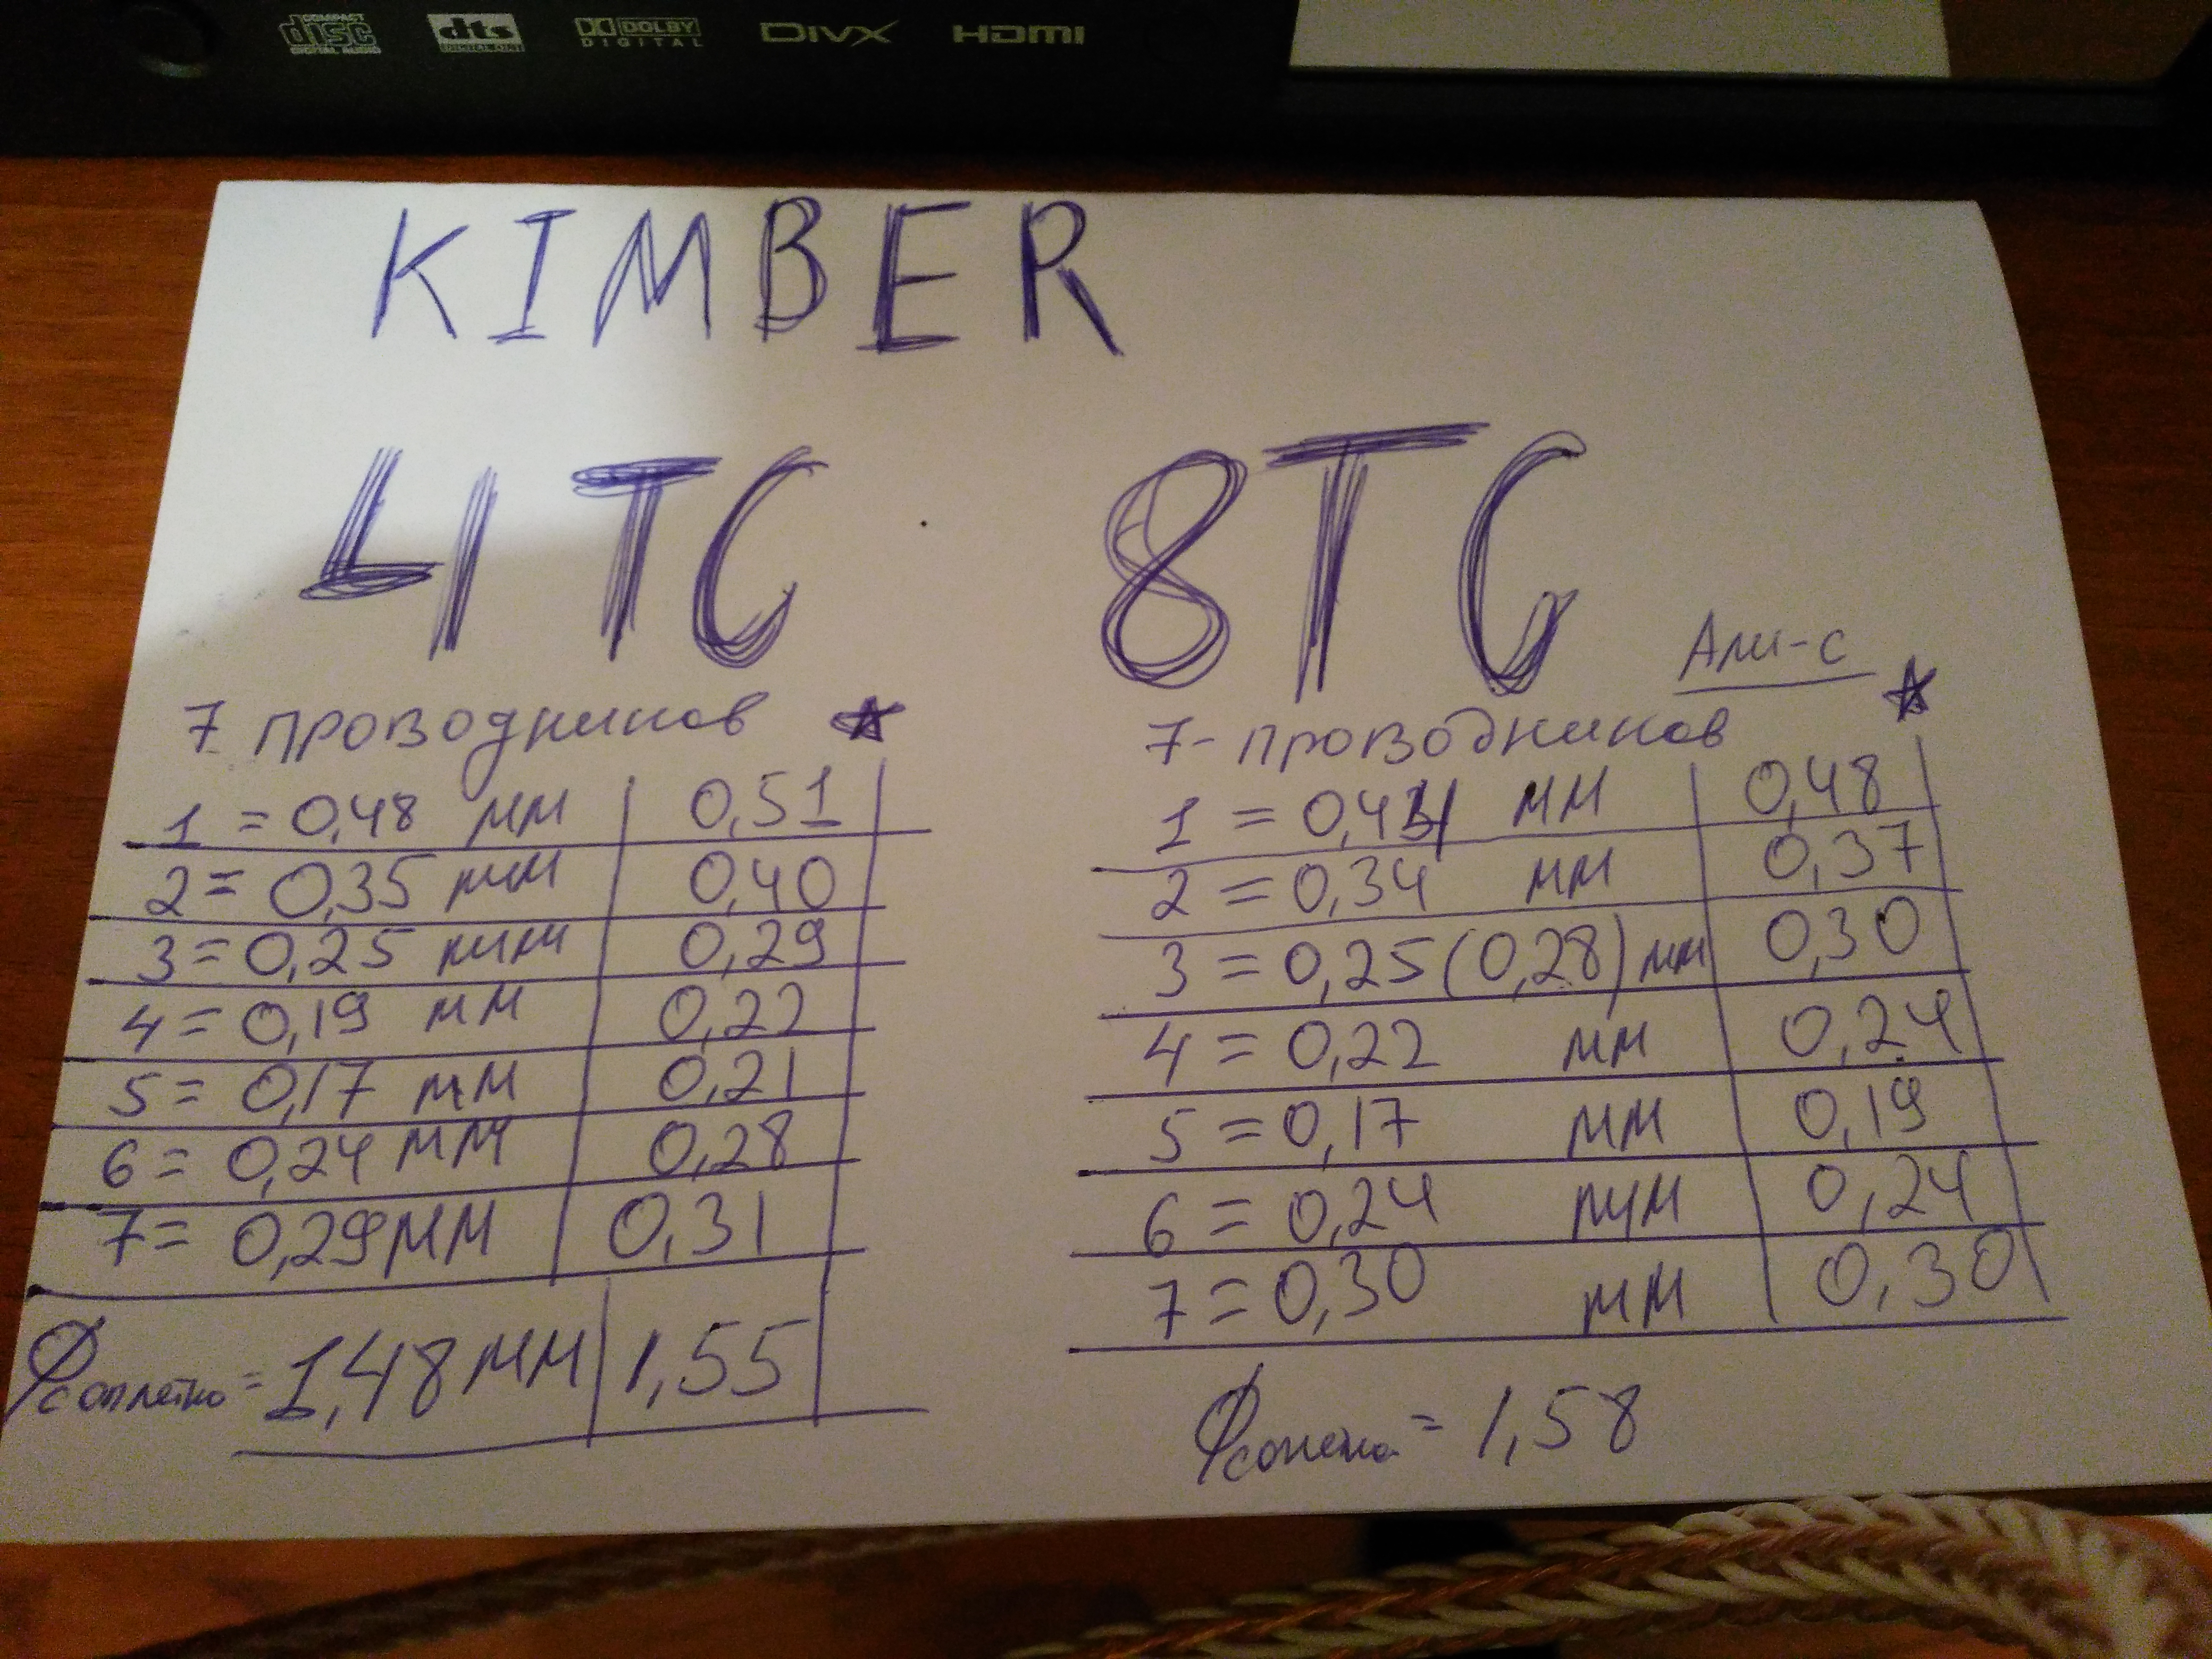 COMPACT disc DIGITAL AUDIO dts DOLBY DIGITAL DIVX HDMI
KIMBER
4TC 8TC
Али-с
7 проводников
1 = 0,48 мм 0,51
2 = 0,35 мм 0,40
3 = 0,25 мм 0,29
4 = 0,19 мм 0,22
5 = 0,17 мм 0,21
6 = 0,24 мм 0,28
7 = 0,29 мм 0,31
Ф с оплетко = 1,48 мм 1,55
7-проводников
1 = мм 0,48
2 = 0,34 мм 0,37
3 = 0,25 (0,28) мм 0,30
4 = 0,22 мм 0,24
5 = 0,17 мм 0,19
6 = 0,24 мм 0,24
7 = 0,30 мм 0,30
Ф = 1,58